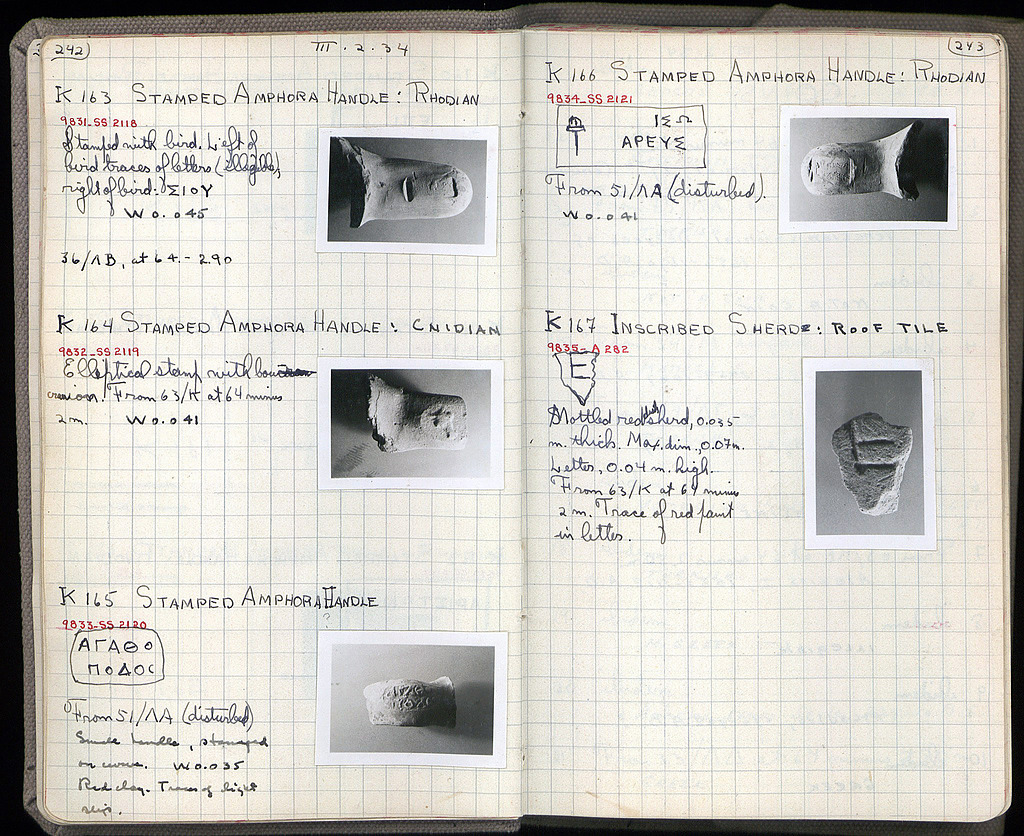 242
III . 2 . 34
K 163 STAMPED AMPHORA HANDLE: RHODIAN
9831-SS 2118
Stamped with bird. Left of
bird traces of letters (illegible),
right of bird: ΣΙΟΥ
W 0.045
36/ΛB, at 64.- 2.90
K 164 STAMPED AMPHORA HANDLE: CNIDIAN
9832-SS 2119
Elliptical stamp with bou
cranion. From 63/K at 64 minus
2 m. W 0.041
K 165 STAMPED AMPHORA HANDLE
?
9833-SS 2120
ΑΓΑΘΟ
ΠΟΔΟC
From 51/ΛA (disturbed)
Small handle, stamped
on curve. W 0.035
Red clay. Traces of light
slip.
243
K 166 STAMPED AMPHORA HANDLE: RHODIAN
9834-SS 2121
ΙΣΩ
ΑΡΕΥΣ
From 51/ΛA (disturbed).
W 0.041
K 167 INSCRIBED SHERD: ROOF TILE
9835- A 282
E
Mottled reddish sherd, 0.035
m. thick. Max. dim., 0.07 m.
Letter, 0.04 m. high.
From 63/K at 64 minus
2 m. Trace of red paint
in letter.